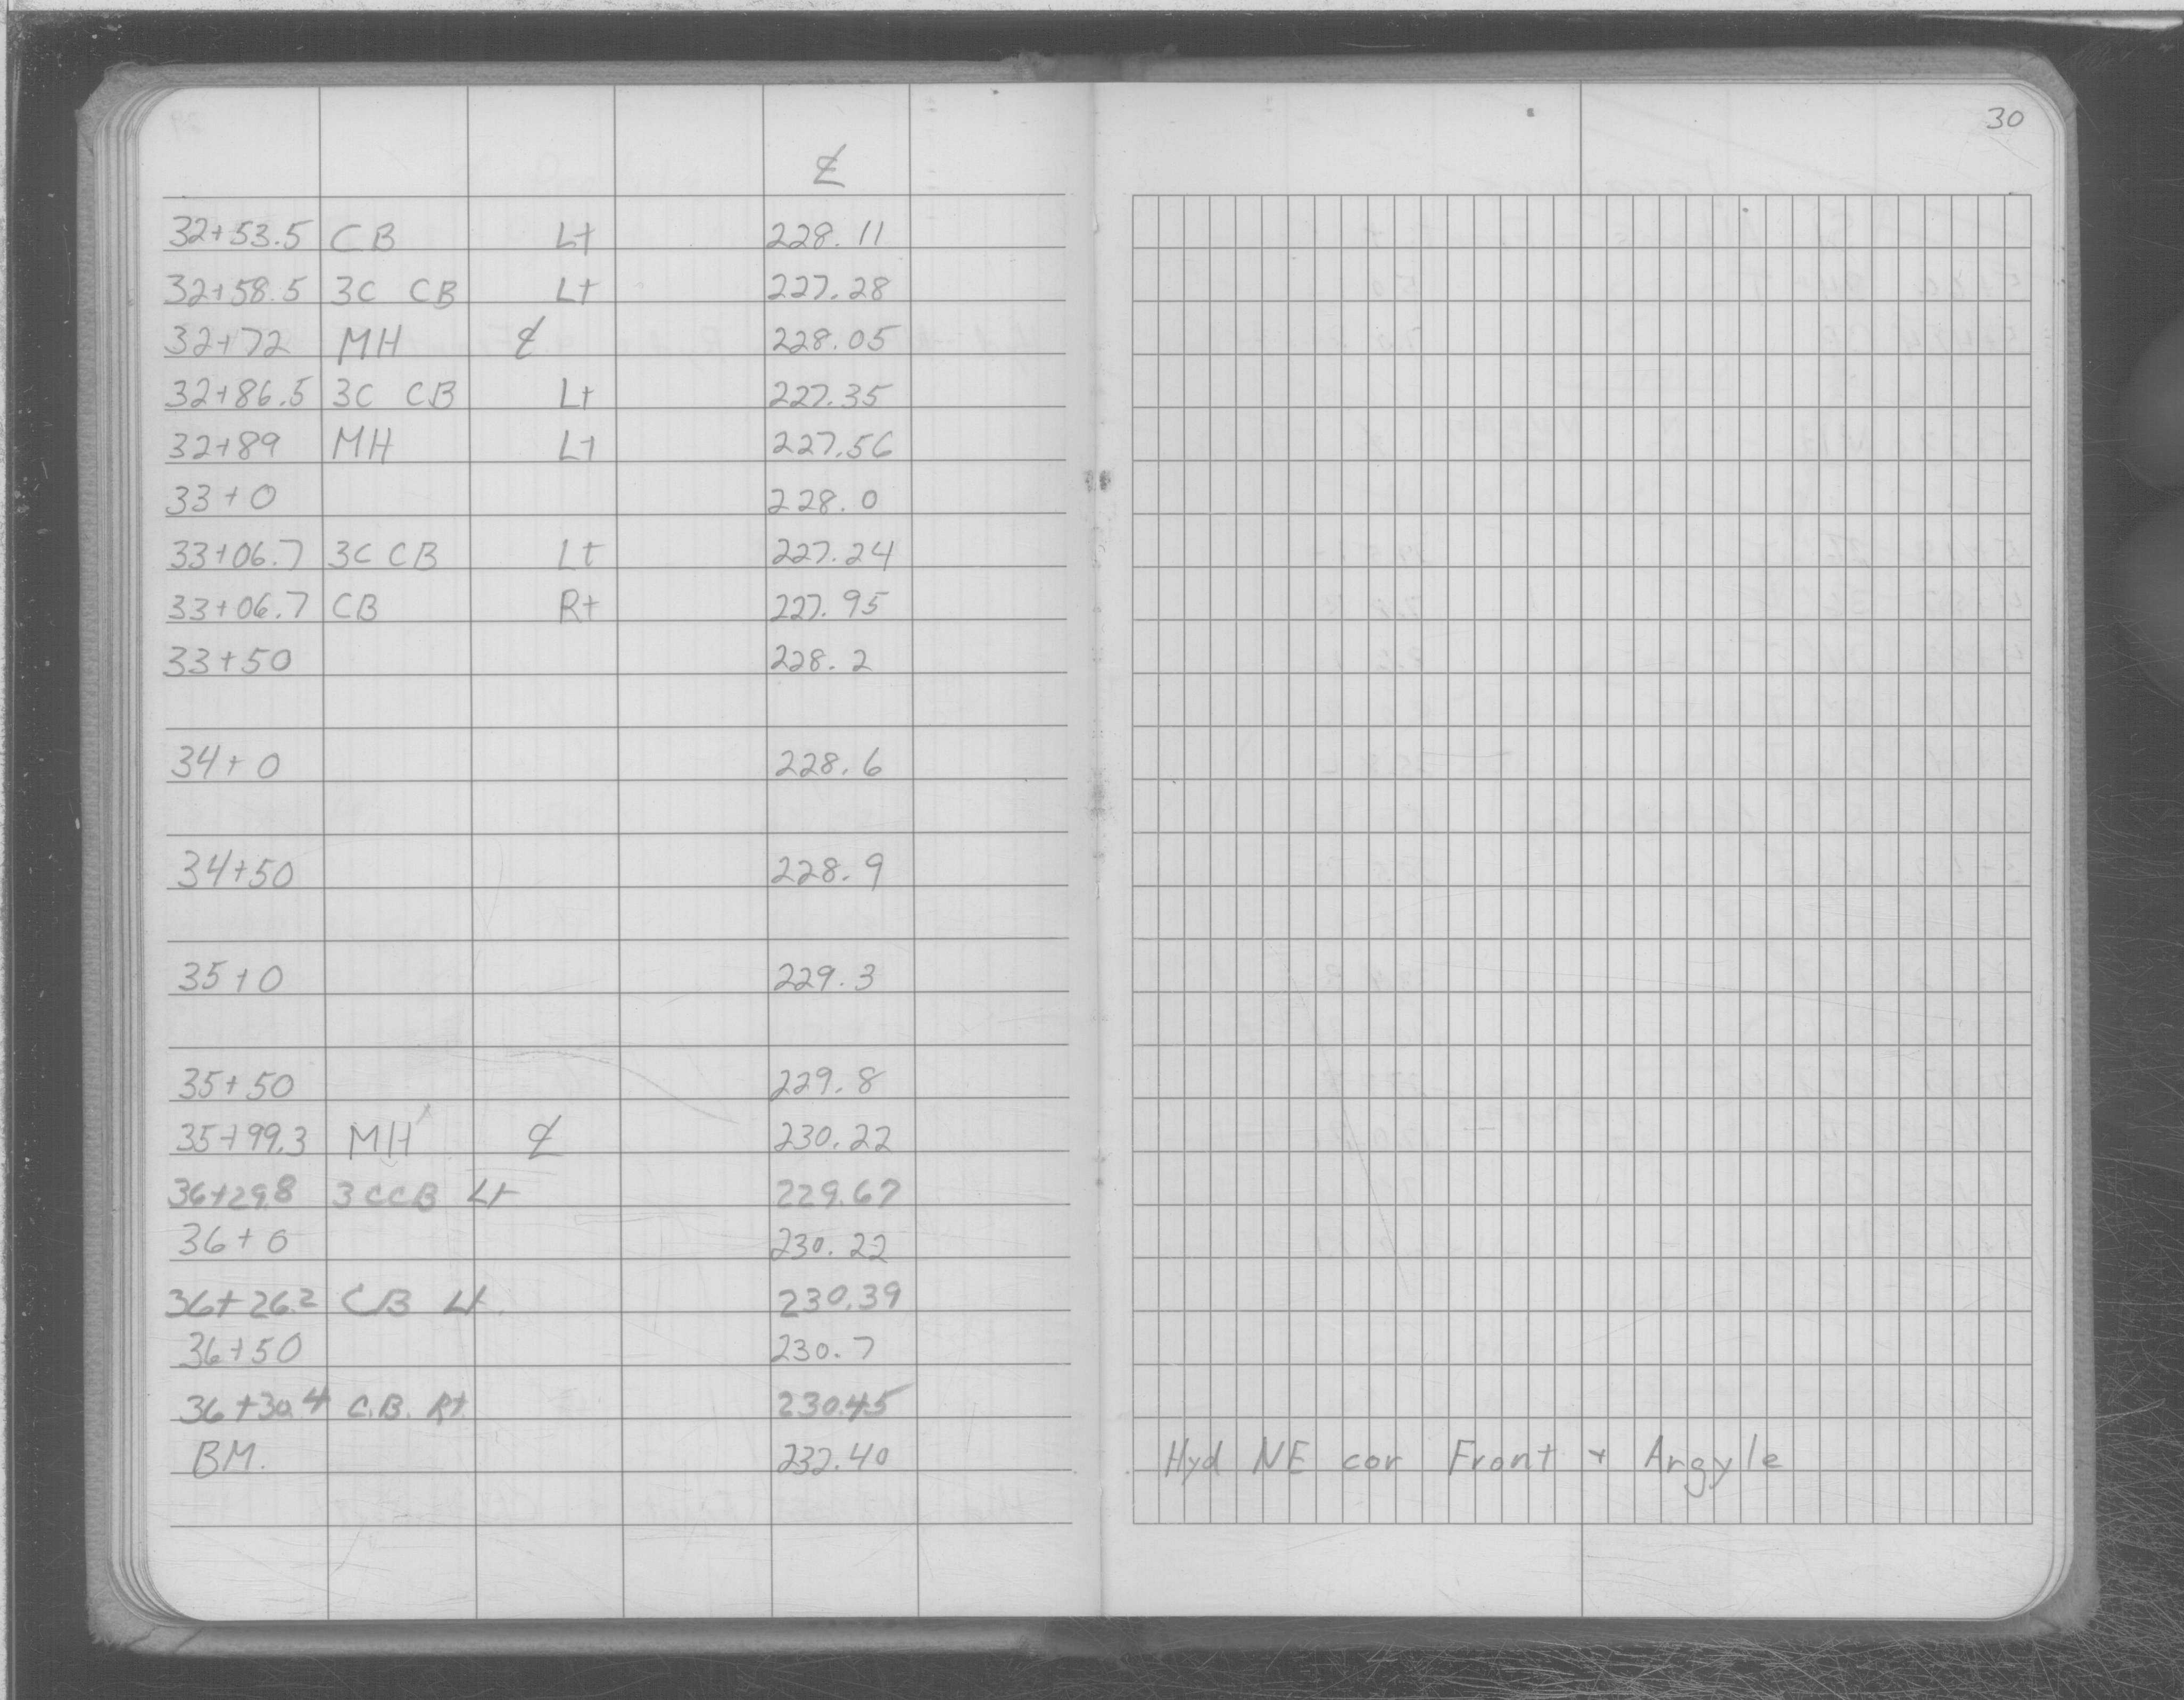 30
℄
32+53.5 CB Lt 228.11
32+58.5 3C CB Lt 227.28
32+72 MH ℄ 228.05
32+86.5 3C CB Lt 227.35
32+89 MH Lt 227.56
33+0 228.0
33+06.7 3C CB Lt 227.24
33+06.7 CB Rt 227.95
33+50 228.2
34+0 228.6
34+50 228.9
35+0 229.3
35+50 229.8
35+99.3 MH ℄ 230.22
36+29.8 3CCB Lt 229.67
36+0 230.22
36+26.2 CB Lt. 230.39
36+50 230.7
36+30.4 C.B. Rt. 230.45
BM. 232.40 Hyd NE cor Front + Argyle